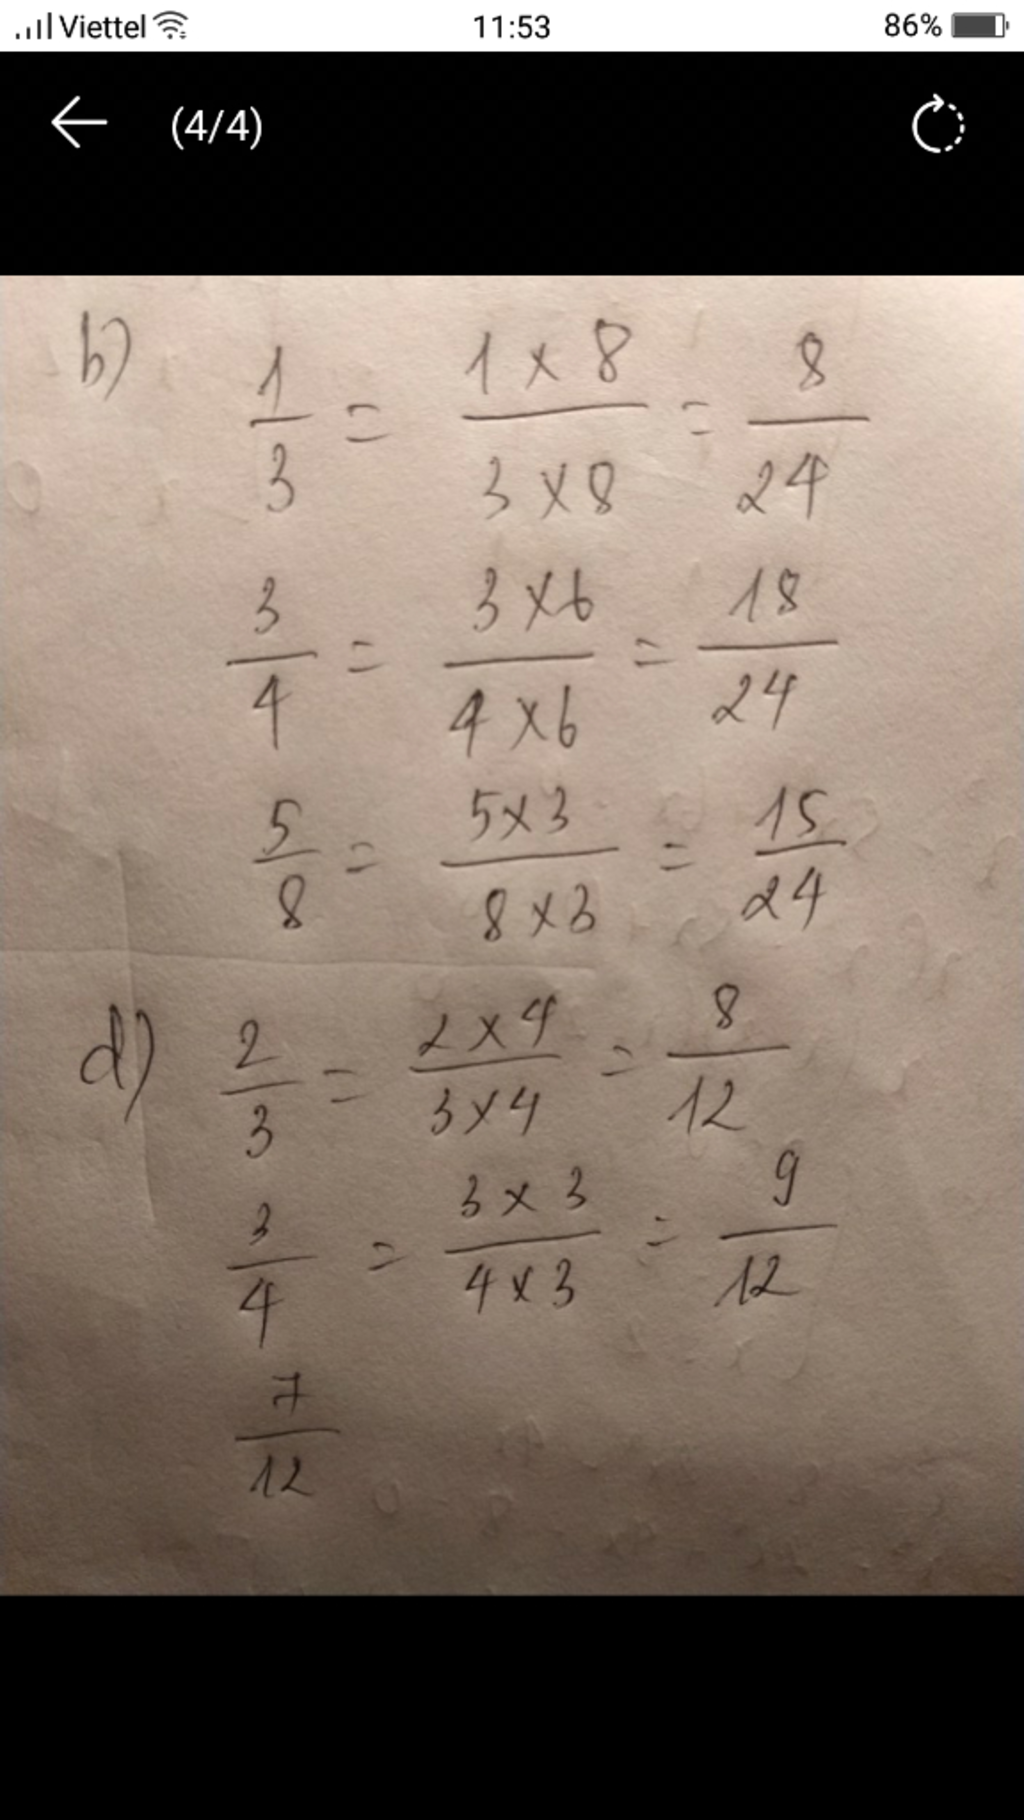 Viettel 11:53 86%
(4/4)
b) 1/3 = 1 x 8 / 3 x 8 = 8/24
3/4 = 3 x 6 / 4 x 6 = 18/24
5/8 = 5 x 3 / 8 x 3 = 15/24
d) 2/3 = 2 x 4 / 3 x 4 = 8/12
3/4 = 3 x 3 / 4 x 3 = 9/12
7/12